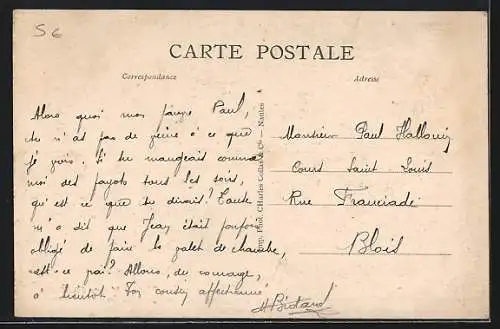 56
CARTE POSTALE
Correspondance
Adresse
Alors quoi mon pauvre Paul,
tu n'as pas de veine à ce que
je vois. Si tu mangeais comme
moi des fayots tous les soirs,
qu'est ce que tu dirais? Tante
m'a dit que Jean était
obligé de faire le valet de chambre,
est-ce vrai? Allons, du courage,
à bientôt Ton cousin affectionné
H
Imp. Phot. Charles Collas & Cie — Nantes
Monsieur Paul
Cours Saint Louis
Rue Franciade
Blois